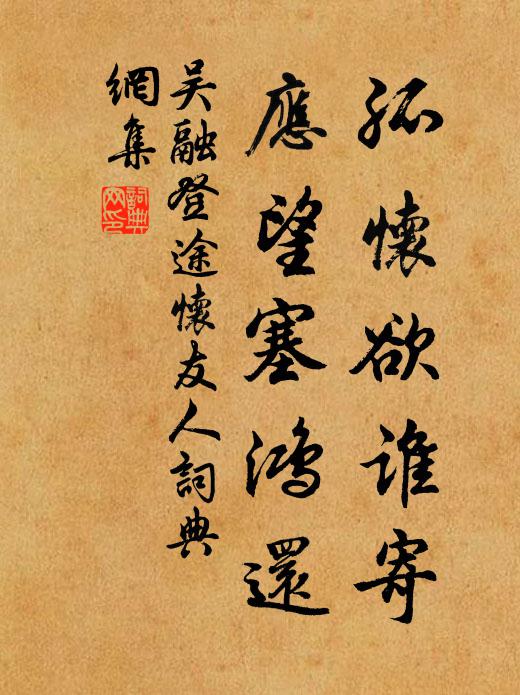 孤懷欲誰寄
應望塞鴻還
吳融登途懷友人詞典
網集
詞典
网印